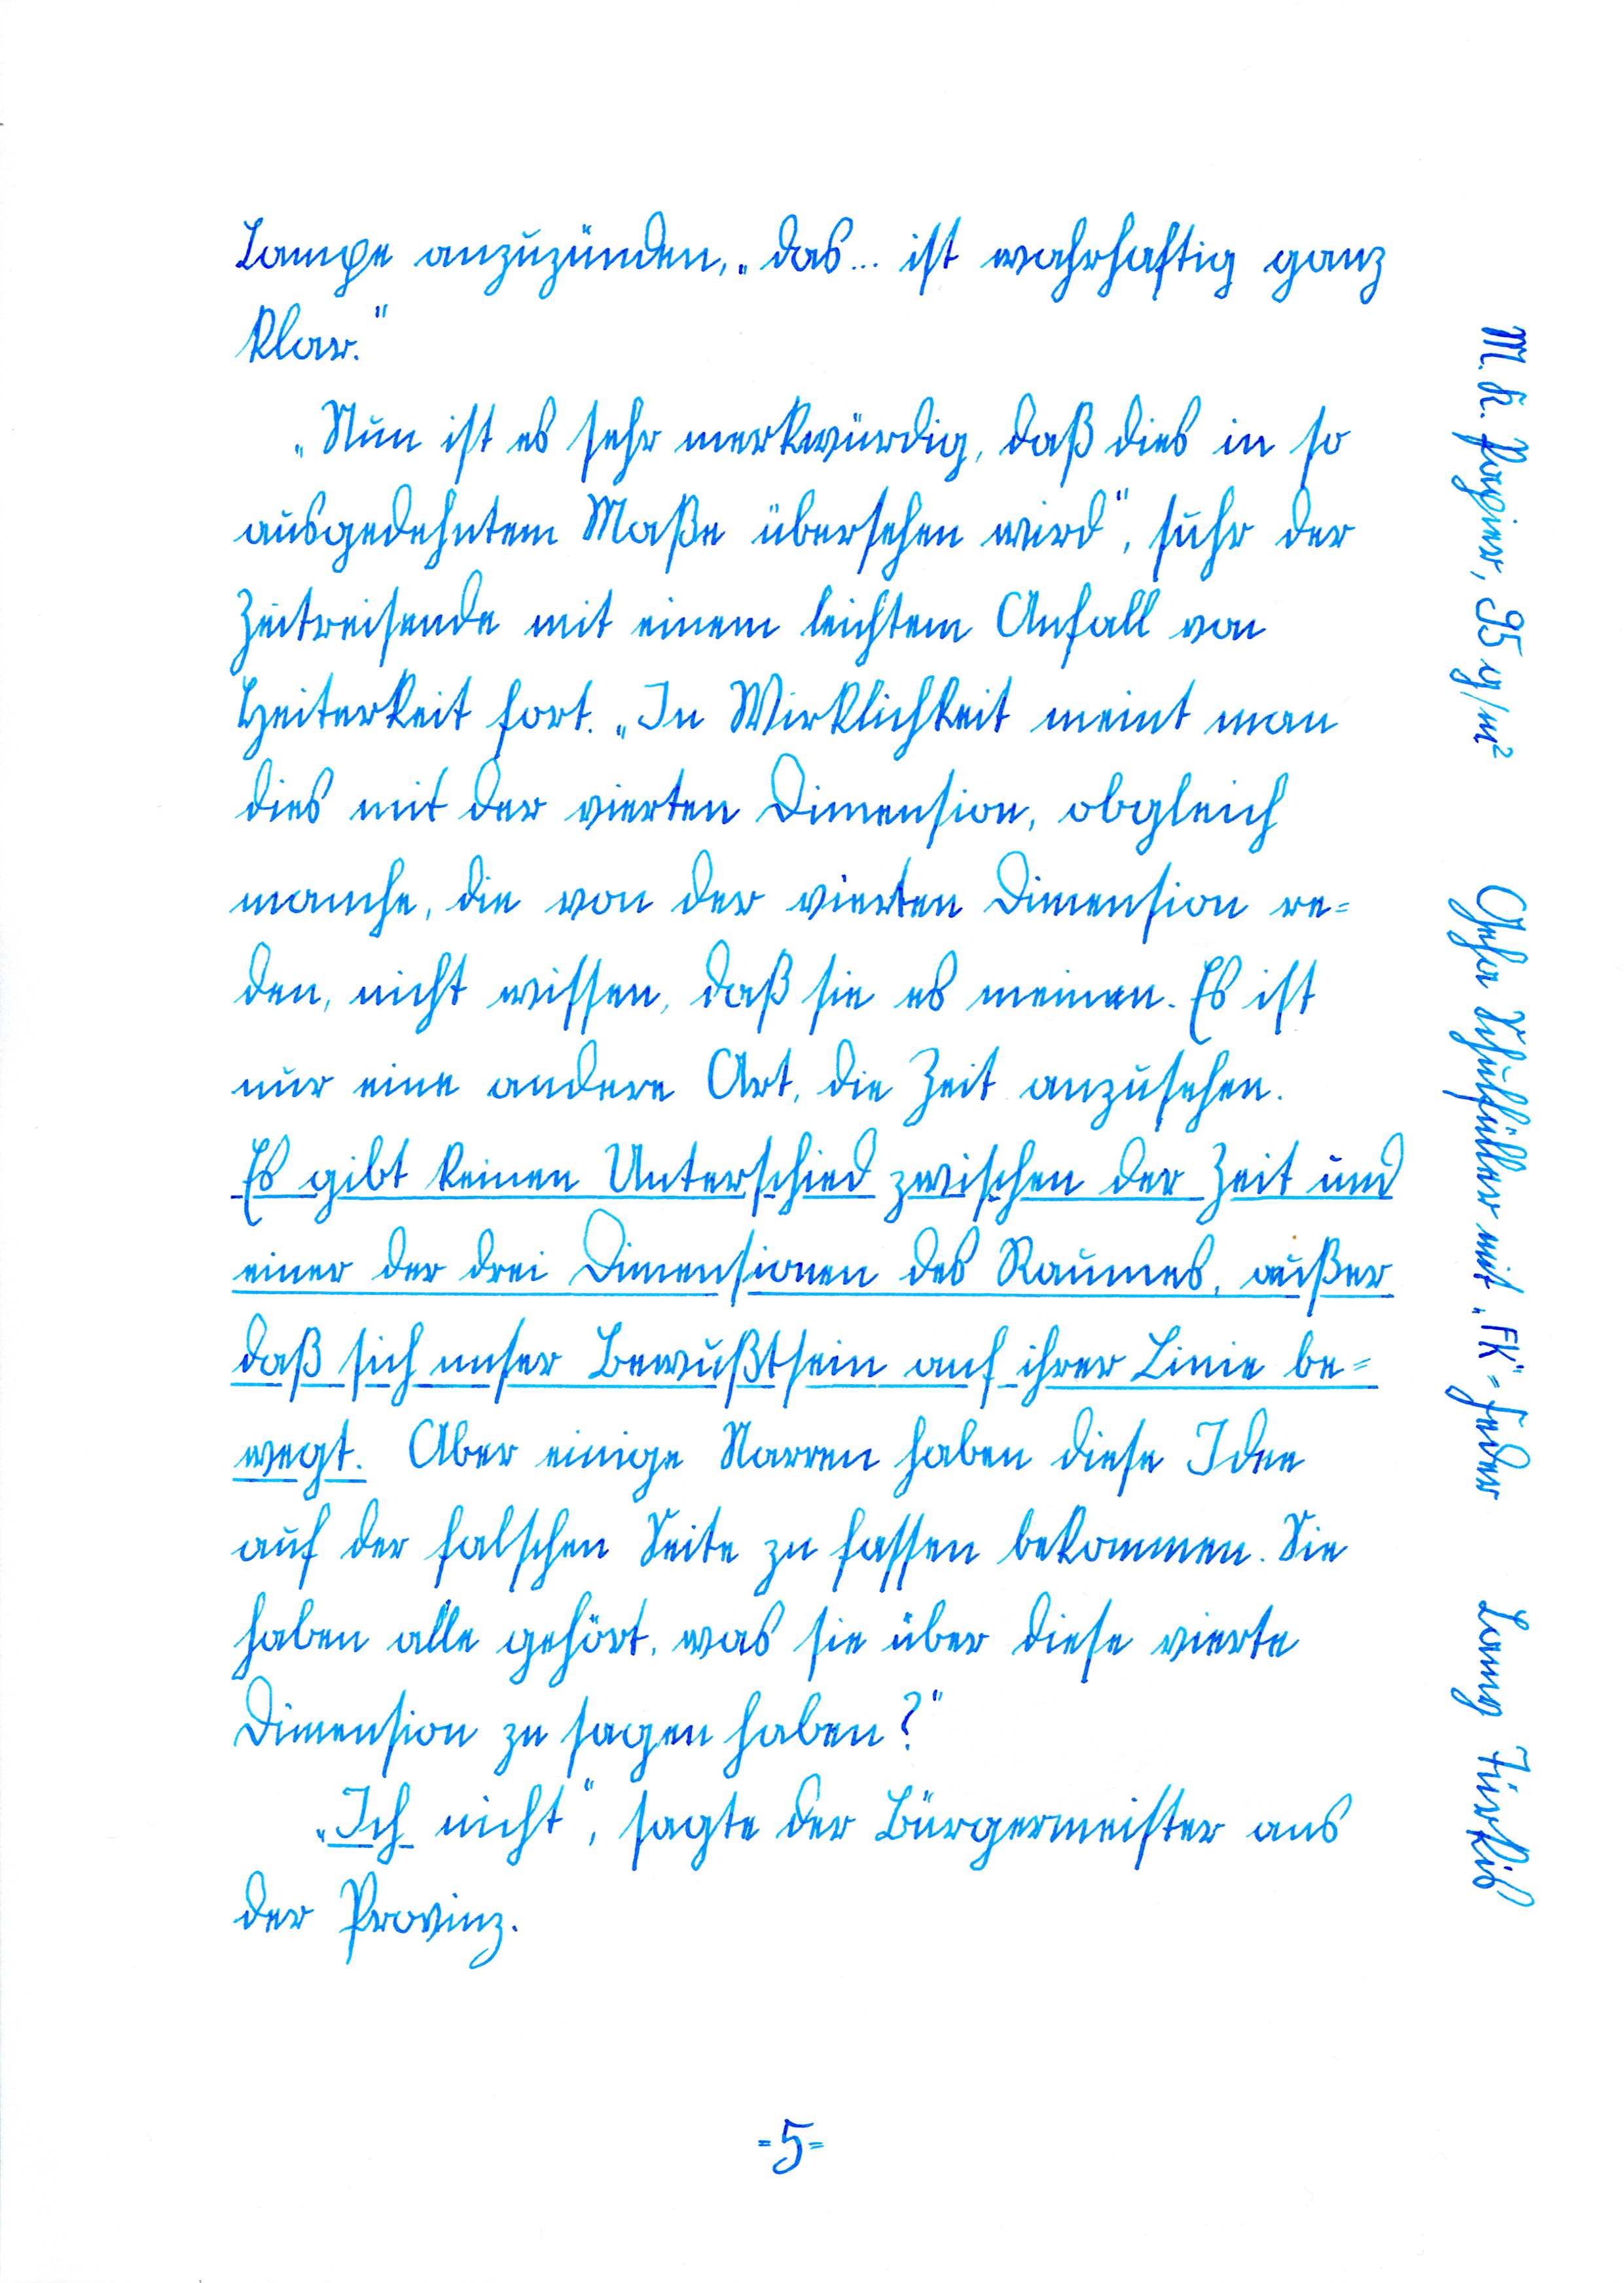 Lampe anzuzünden, „das... ist wahrhaftig ganz
klar.“
„Nun ist es sehr merkwürdig, daß dies in so
ausgedehntem Maße übersehen wird“, fuhr der
Zeitreisende mit einem leichtem Anfall von
Heiterkeit fort. „In Wirklichkeit meint man
dies mit der vierten Dimension, obgleich
manche, die von der vierten Dimension re=
den, nicht wissen, daß sie es meinen. Es ist
nur eine andere Art, die Zeit anzusehen.
Es gibt keinen Unterschied zwischen der Zeit und
einer der drei Dimensionen des Raumes, außer
daß sich unser Bewußtsein auf ihrer Linie be=
wegt. Aber einige Narren haben diese Idee
auf der falschen Seite zu fassen bekommen. Sie
haben alle gehört, was sie über diese vierte
Dimension zu sagen haben?“
„Ich nicht“, sagte der Bürgermeister aus
der Provinz.
=5=
M. K. Papier, 95 g/m² Geha Schulfüller mit „FK“=Feder Lamy Türkis